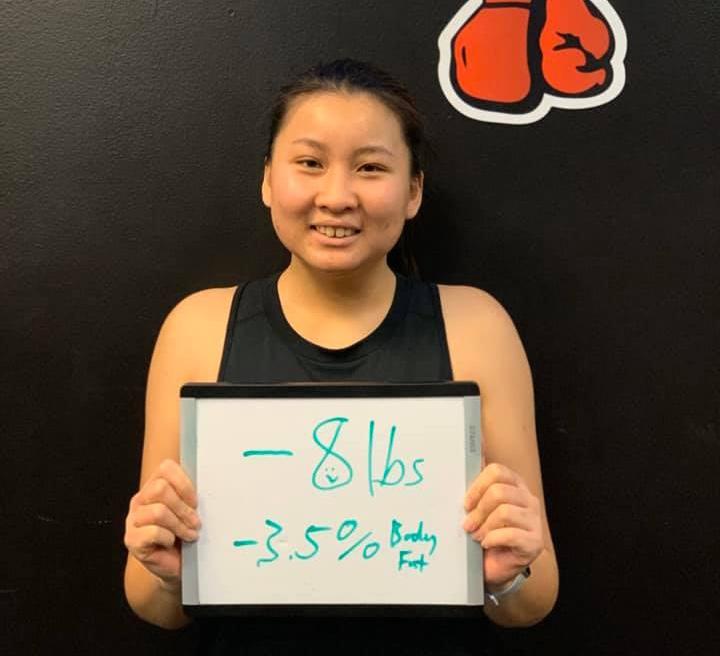 -8 lbs
-3.5% Body
Fat